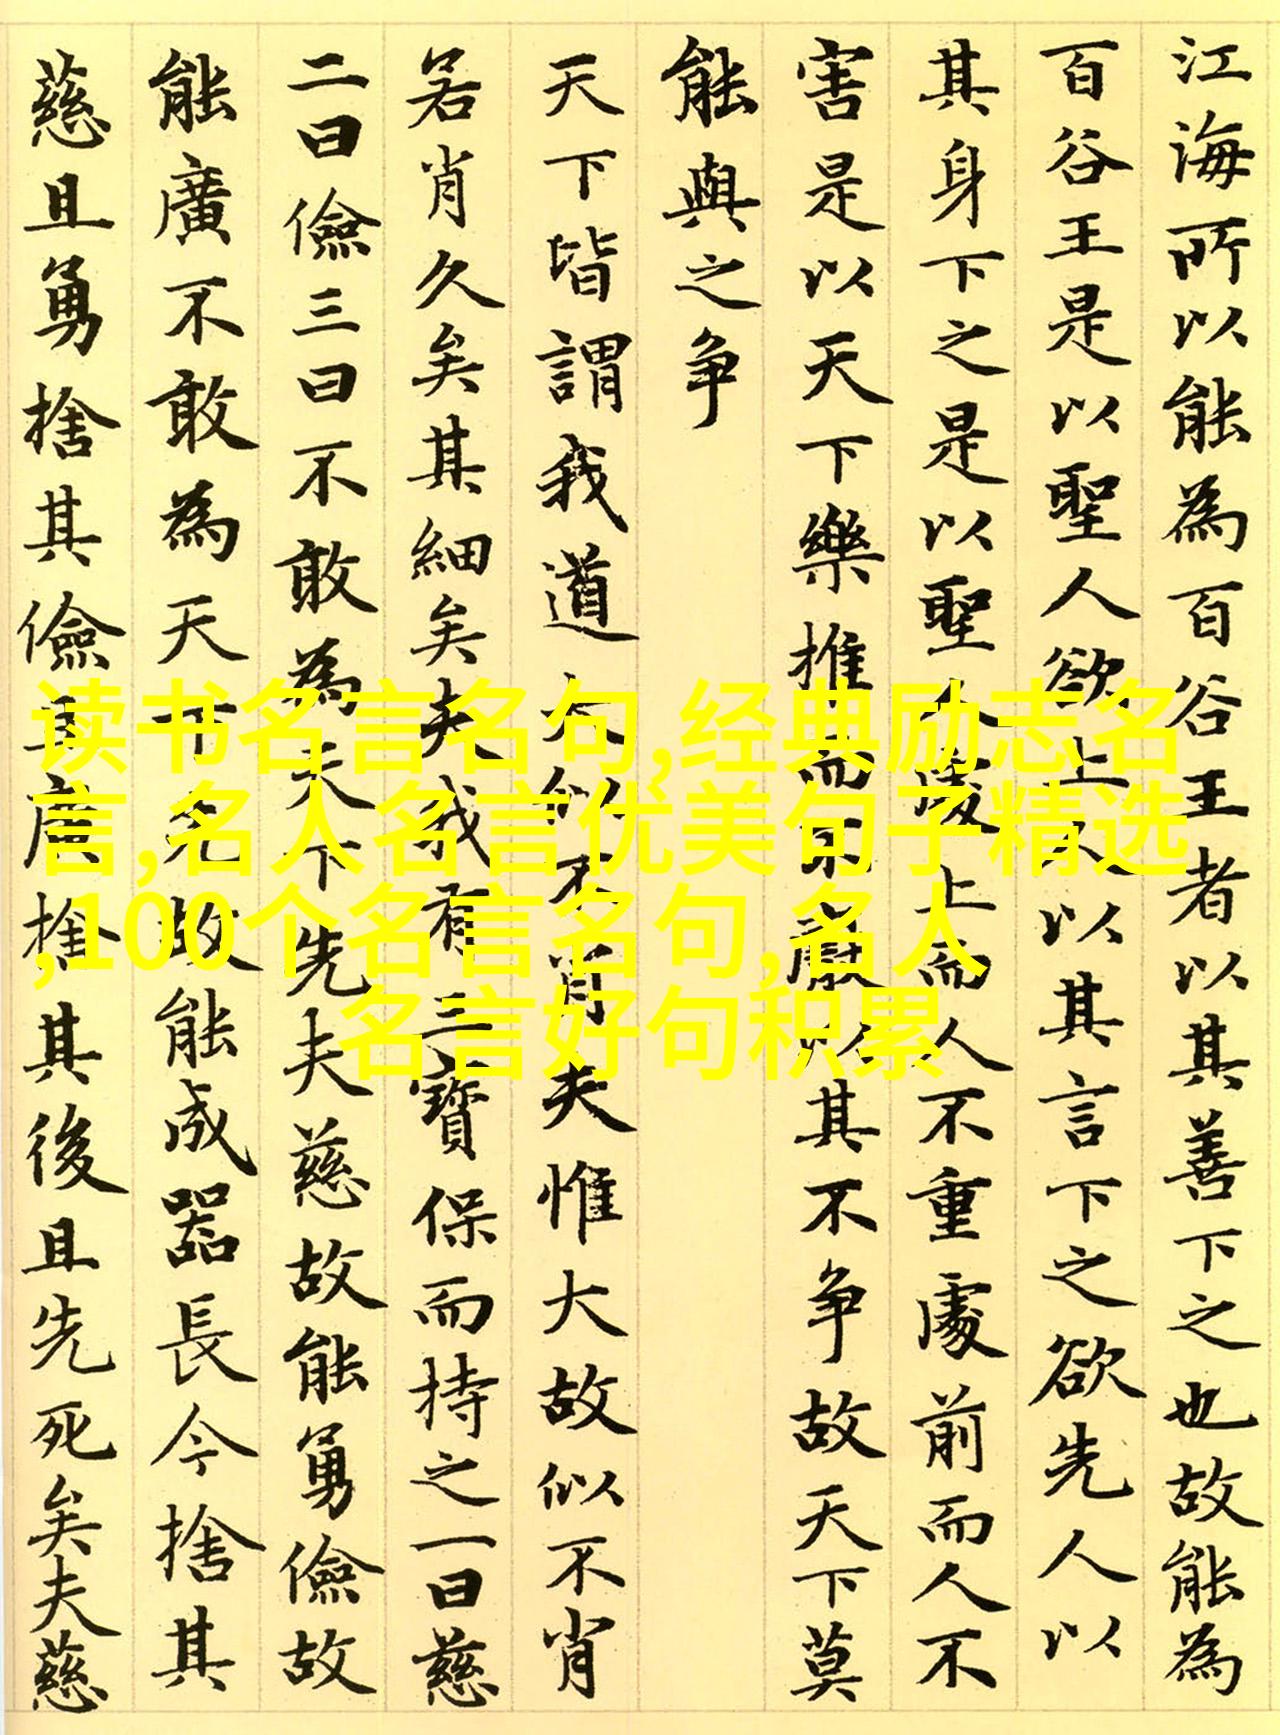 江海所以能為百谷王者以其善下之也故能為
百谷王是以聖人欲上人以其言下之欲先人以
其身下之是以聖人處上而人不重處前而人不
害是以天下樂推而不厭以其不争故天下莫
能與之争
天下皆謂我道大似不肖夫惟大故似不肖
若肖久矣其細矣夫我有三寶保而持之一曰慈
二曰儉三曰不敢為天下先夫慈故能勇儉故
能廣不敢為天下先故能成器長今捨其
慈且勇捨其儉且廣捨其後且先死矣夫慈
读书名言名句,经典励志名
言,名人名言优美句子精选
,100个名言名句,名人
名言好句积累